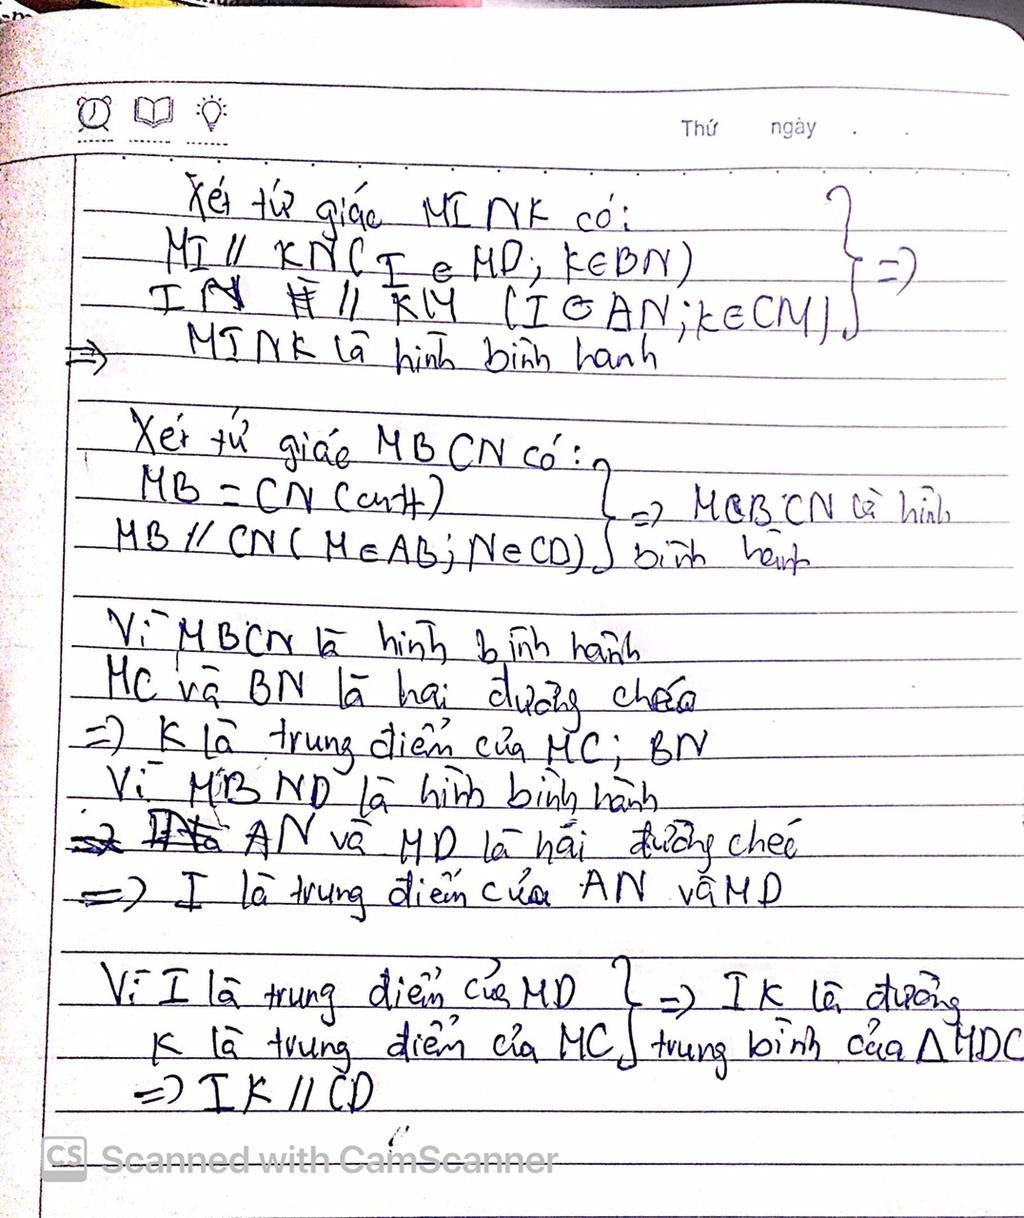 Thứ ngày . .
Xét tứ giác MINK có:
MI // KN ( I ∈ MD; K∈BN)
IN // KM (I ∈ AN; K∈CM) } =>
=> MINK là hình bình hanh
Xét tứ giác MBCN có:
MB = CN (cmt)
MB // CN ( M∈AB; N∈CD) } => MBCN là hình bình hành
Vì MBCN là hình bình hành
MC và BN là hai đường chéo
=> K là trung điểm của MC; BN
Vì MBND là hình bình hành
AN và MD là hai đường chéo
=> I là trung điểm của AN và MD
Vì I là trung điểm của MD } => IK là đường
K là trung điểm của MC } trung bình của ΔMDC
=> IK // CD
CS Scanned with CamScanner